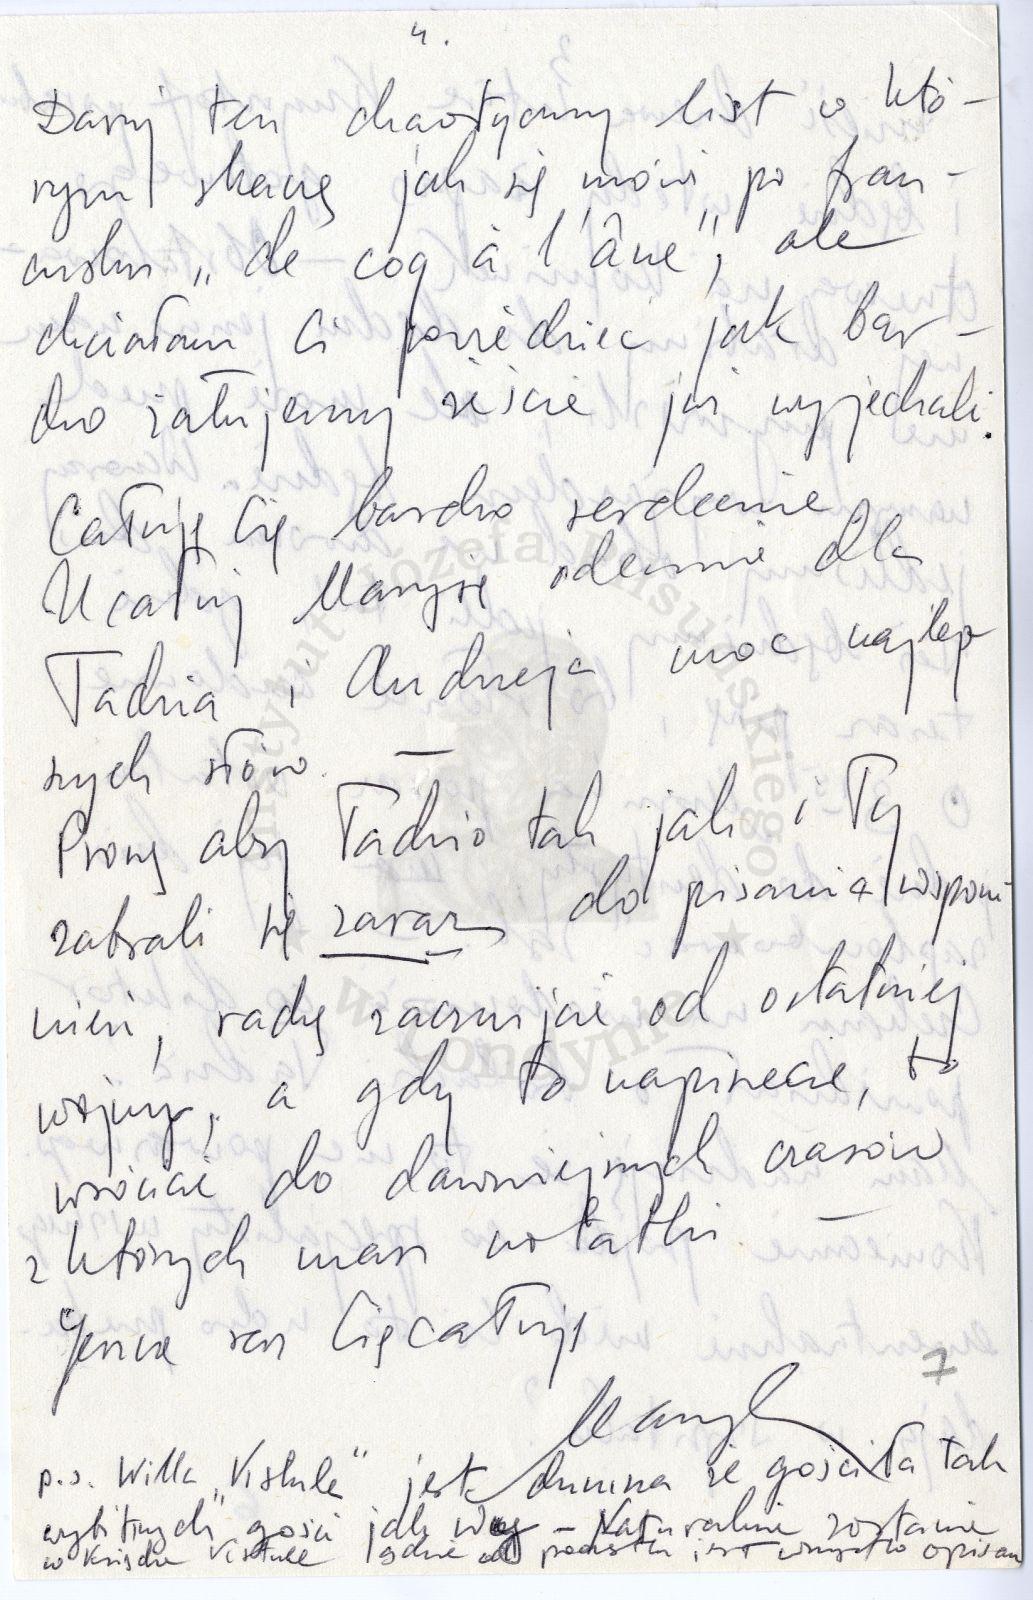 4.
Daruj ten chaotyczny list w któ-
rym skaczę jak się mówi po fran-
cusku „de coq à l'âne", ale
chciałam Ci powiedzieć jak bar-
dzo żałujemy żeście już wyjechali.
Całuję Cię bardzo serdecznie
Ucałuj Marysię odemnie dla
Tadzia i Andrzeja moc najlep
szych słów. —
Proszę aby Tadzio tak jak i Ty
zabrali się zaraz do pisania wspom
nień, radzę zacznijcie od ostatniej
wojny, a gdy to napiszecie, to
wrócicie do dawniejszych czasów
z których masz notatki. —
Jeszcze raz Cię całuję
7
p.s. Willa „Vistule" jest dumna że gościła tak
wybitnych gości jak Wy — Naturalnie zostanie
w Księdze Vistule gdzie od początku jest wszystko opisan
Instytut Józefa Piłsudskiego
★ w Londynie ★